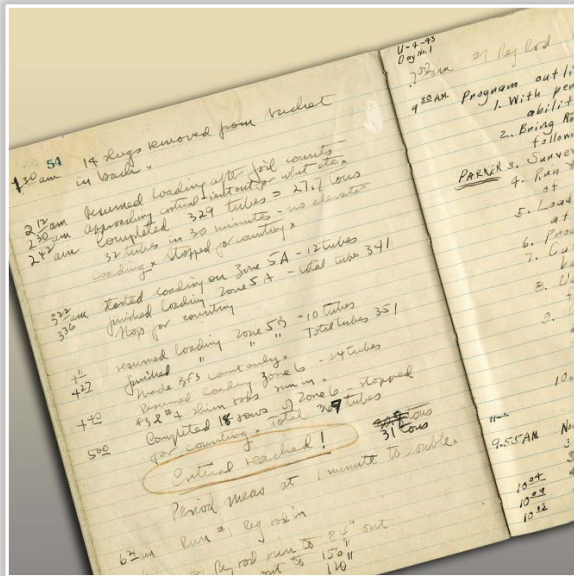 54
1 30 am 14 slugs removed from bucket
in back.
2 12 am resumed loading after foil counts
2 30 am approaching critical
2 42 am Completed 329 tubes = 27.7 tons
32 tubes in 30 minutes - no elevator
loading. Stopped for counting.
3 22 am Started loading on Zone 5A - 12 tubes
3 36 finished loading Zone 5A - total tubes 341
Stop for counting
4 11 resumed loading Zone 5B - 10 tubes
4 27 finished " " " Total tubes 351
Made BF3 count only.
4 40 Resumed loading Zone 6 - 24 tubes
#3 & #4 shim rods run in.
5 00 Completed 18 rows of Zone 6 - stopped
for counting. Total 367 tubes
tons
31 tons
Critical reached!
Period meas at 1 minute to double.
Run #1 Reg rod in
Reg rod run to 84" out
out to 150"
120"
11-4-43
Day No. 1
#1 Reg Rod
9 30 AM Program outli
1. With per
abilit
2. Bring Re
follow
PARKER 3. Surve
4. Run
at
5. Load
at
6.
7.
8.
9.
10.
9:55 AM
10 04
10 09
10 32